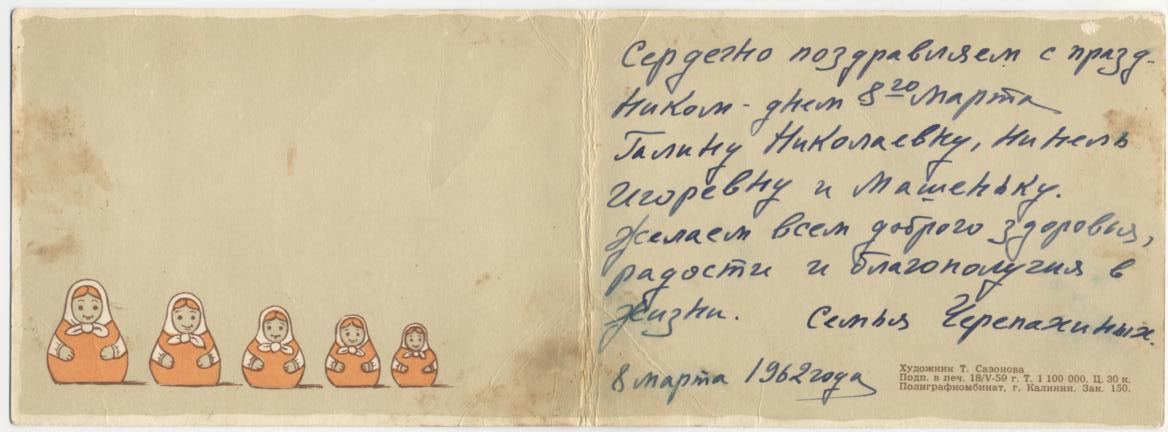 Сердечно поздравляем с празд-
ником - днем 8го марта
Галину Николаевну, Нинель
Игоревну и Машеньку.
Желаем всем доброго здоровья,
радости и благополучия в
жизни. Семья Черепахиных.
8 марта 1962 года
Художник Т. Сазонова
Подп. в печ. 18/V-59 г. Т. 1 100 000. Ц. 30 к.
Полиграфкомбинат, г. Калинин. Зак. 150.